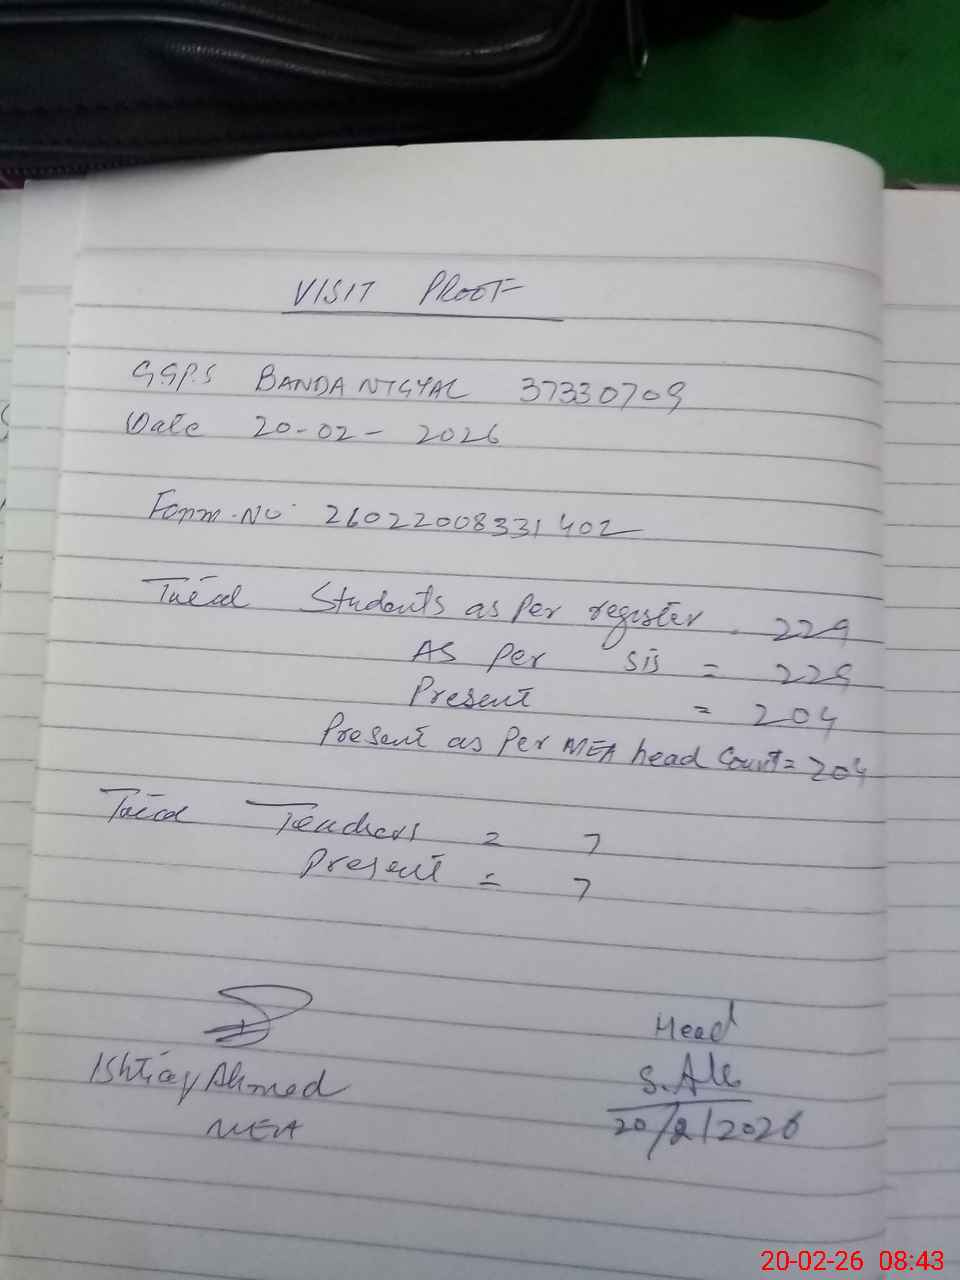 VISIT PROOF
GGPS BANDA NIGYAL 37330709
Date 20-02-2026
Form.No. 26022008331402
Total Students as Per register. 229
AS Per SIS = 229
Present = 204
Present as Per MEA head Count = 204
Total Teachers = 7
Present = 7
Ishtiaq Ahmed
MEA
Head
S.Ale
20/2/2026
20-02-26 08:43